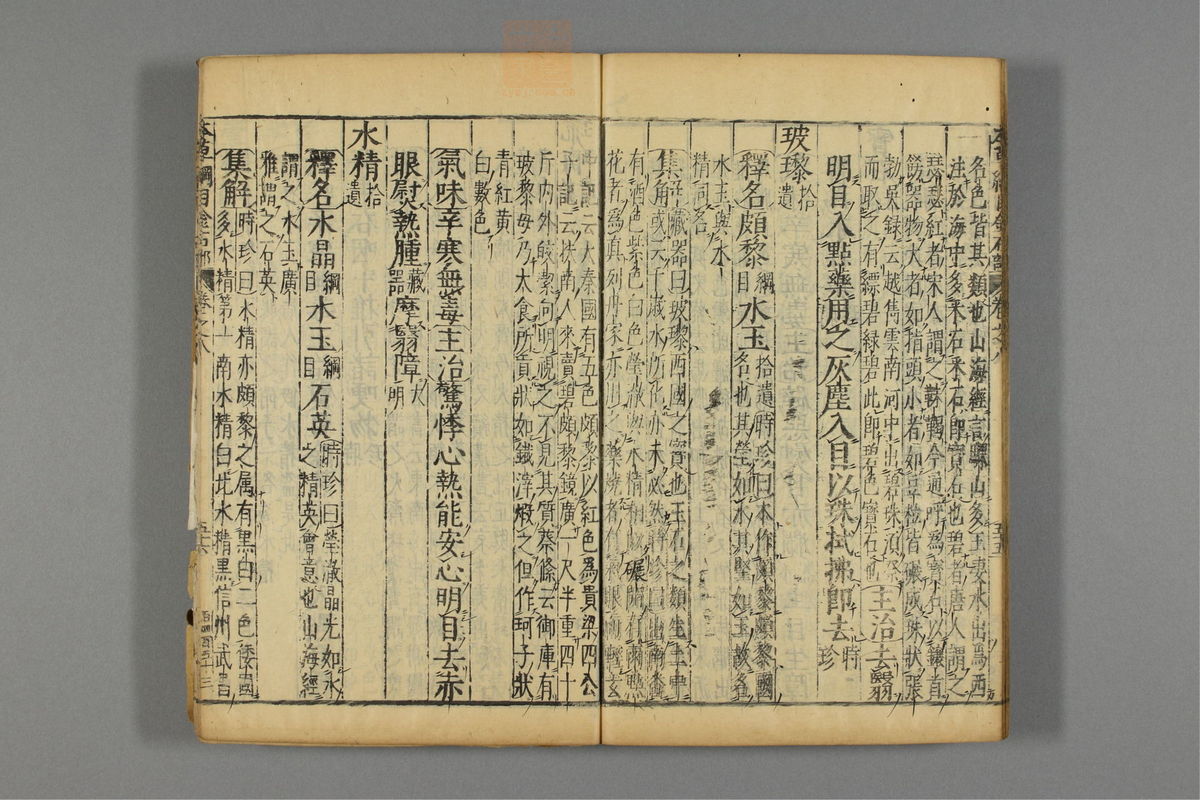 名色皆其類也山海經言騩山多玉凄水出焉西
注於海中多采石采石即寶石也碧者唐人謂之
瑟瑟紅者宋人謂之靺鞨今通呼為寶石以鑲首
飾器物大者如指頭小者如豆粒皆碾成珠狀張
勃吳錄云越雋雲南河中出碧珠須祭
而取之有縹碧綠碧此即碧色寶石也 主治去翳
明目入點藥用之灰塵入目以珠拭拂即去 時珍
玻瓈 拾遺
釋名頗黎 綱目 水玉 拾遺時珍曰本作頗黎頗黎國
名也其瑩如水其堅如玉故名
水玉與水
精同名
集解 藏器曰玻瓈西國之寶也玉石之類生土中
或云千歲水所化亦未必然時珍曰出南番
有酒色紫色白色瑩澈與水精相似碾開有雨點
花者為真列丹家亦用之藥燒者有氣眼而輕玄
中記云大秦國有五色頗黎以紅色為貴梁四公
子記云扶南人來賣碧頗黎鏡廣一尺半重四十
斤內外皎潔向明視之不見其質蔡絛云御庫有
玻瓈母乃大食所貢狀如鐵滓煅之但作珂子狀
青紅黃
白數色
氣味辛寒無毒主治驚悸心熱能安心明目去赤
眼熨熱腫 藏器 摩翳障 大明
水精 拾遺
釋名水晶 綱目 水玉 綱目 石英 時珍曰瑩澈晶光如水
之精英會意也山海經
謂之水玉廣
雅謂之石英
集解 時珍曰水精亦頗黎之屬有黑白二色倭國
多水精第一南水精白北水精黑信州武昌